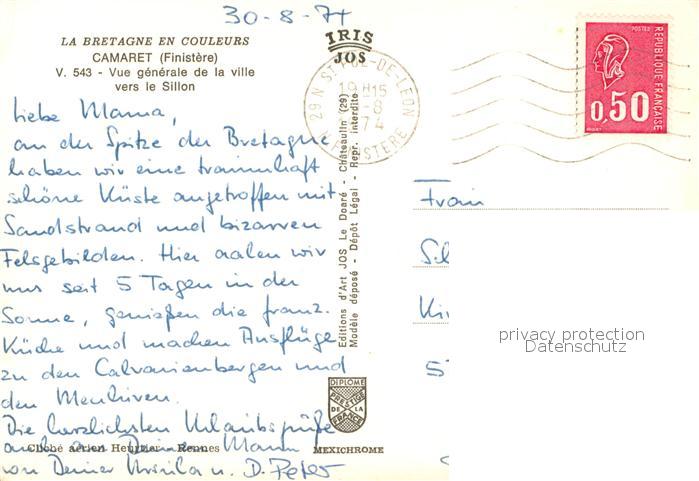 30-8-74
LA BRETAGNE EN COULEURS
CAMARET (Finistère)
V. 543 - Vue générale de la ville
vers le Sillon
IRIS
JOS
29 N ST-POL-DE-LEON
19 H 15
-8
74
N. FINISTERE
POSTES
REPUBLIQUE FRANÇAISE
0,50
liebe Mama,
an der Spitze der Bretagne
haben wir eine traumhaft
schöne Küste angetroffen mit
Sandstrand und bizarren
Felsgebilden. Hier aalen wir
uns seit 5 Tagen in der
Sonne, genießen die franz.
Küche und machen Ausflüge
zu den Calvarienbergen und
den Menhiren.
Die herzlichsten Urlaubsgrüße
auch an Deinen Mann
von Deiner Ursula u. D. Peter
Cliché aérien Heurtier - Rennes
Editions d'Art JOS Le Doaré - Châteaulin (29)
Modèle déposé - Dépôt Légal - Repr. interdite
DIPLOME
PRESTIGE
DE LA
FRANCE
MEXICHROME
Frau
Ki
5
privacy protection
Datenschutz